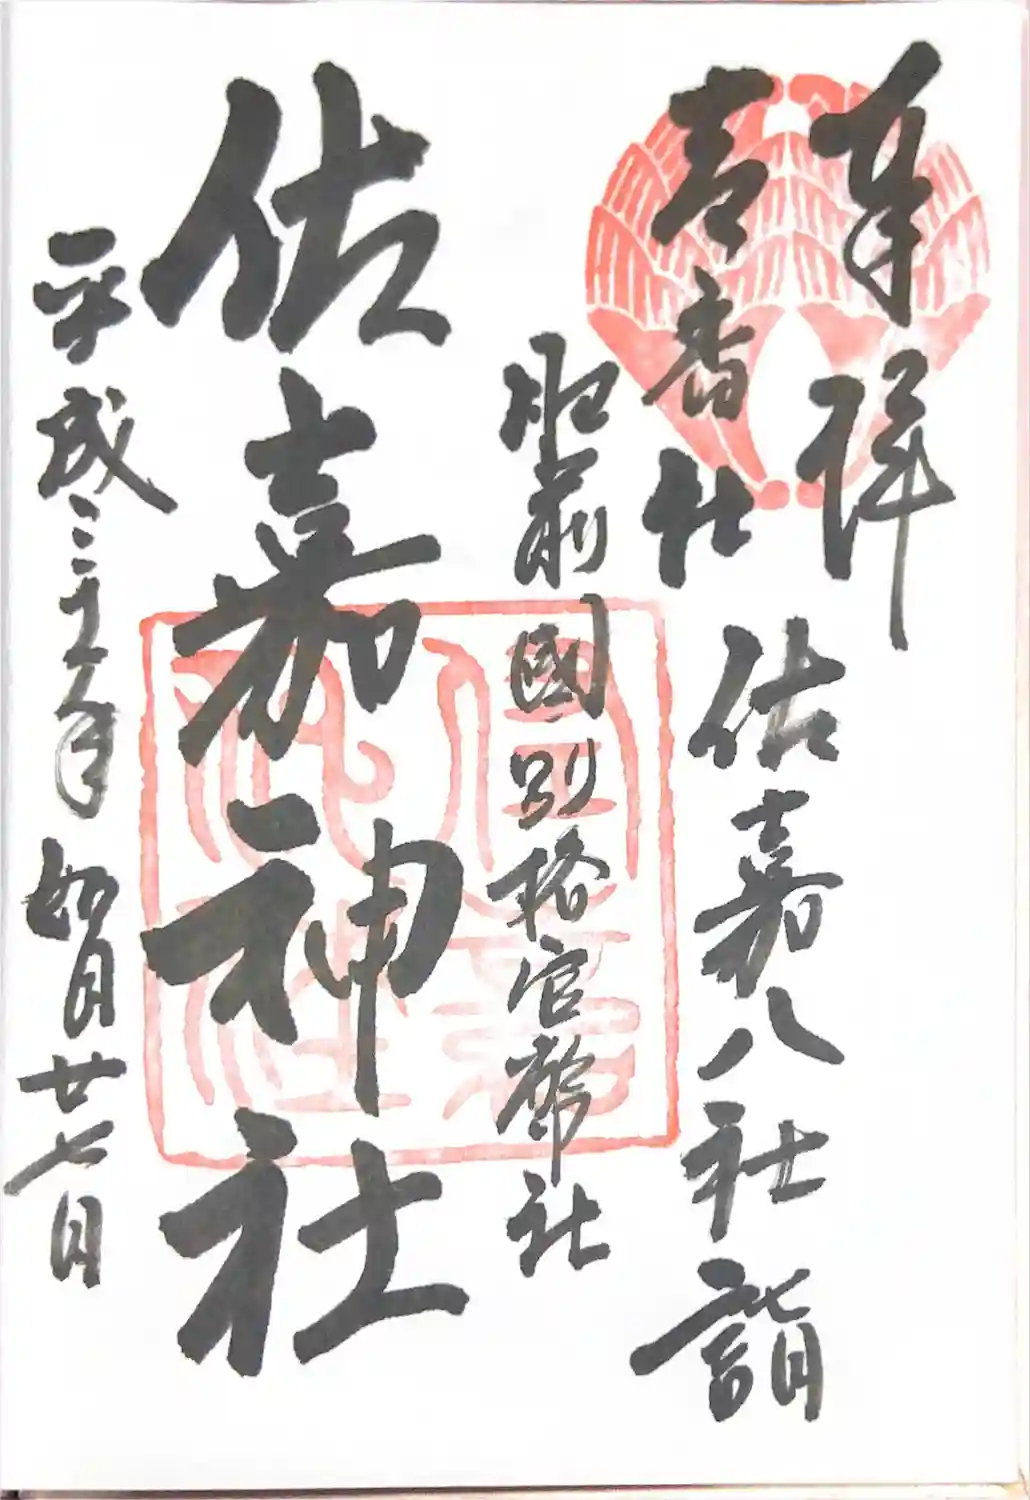 奉拝
壱番社
佐嘉八社詣
肥前國別格官幣社
佐嘉神社
平成 年 如月廿七日